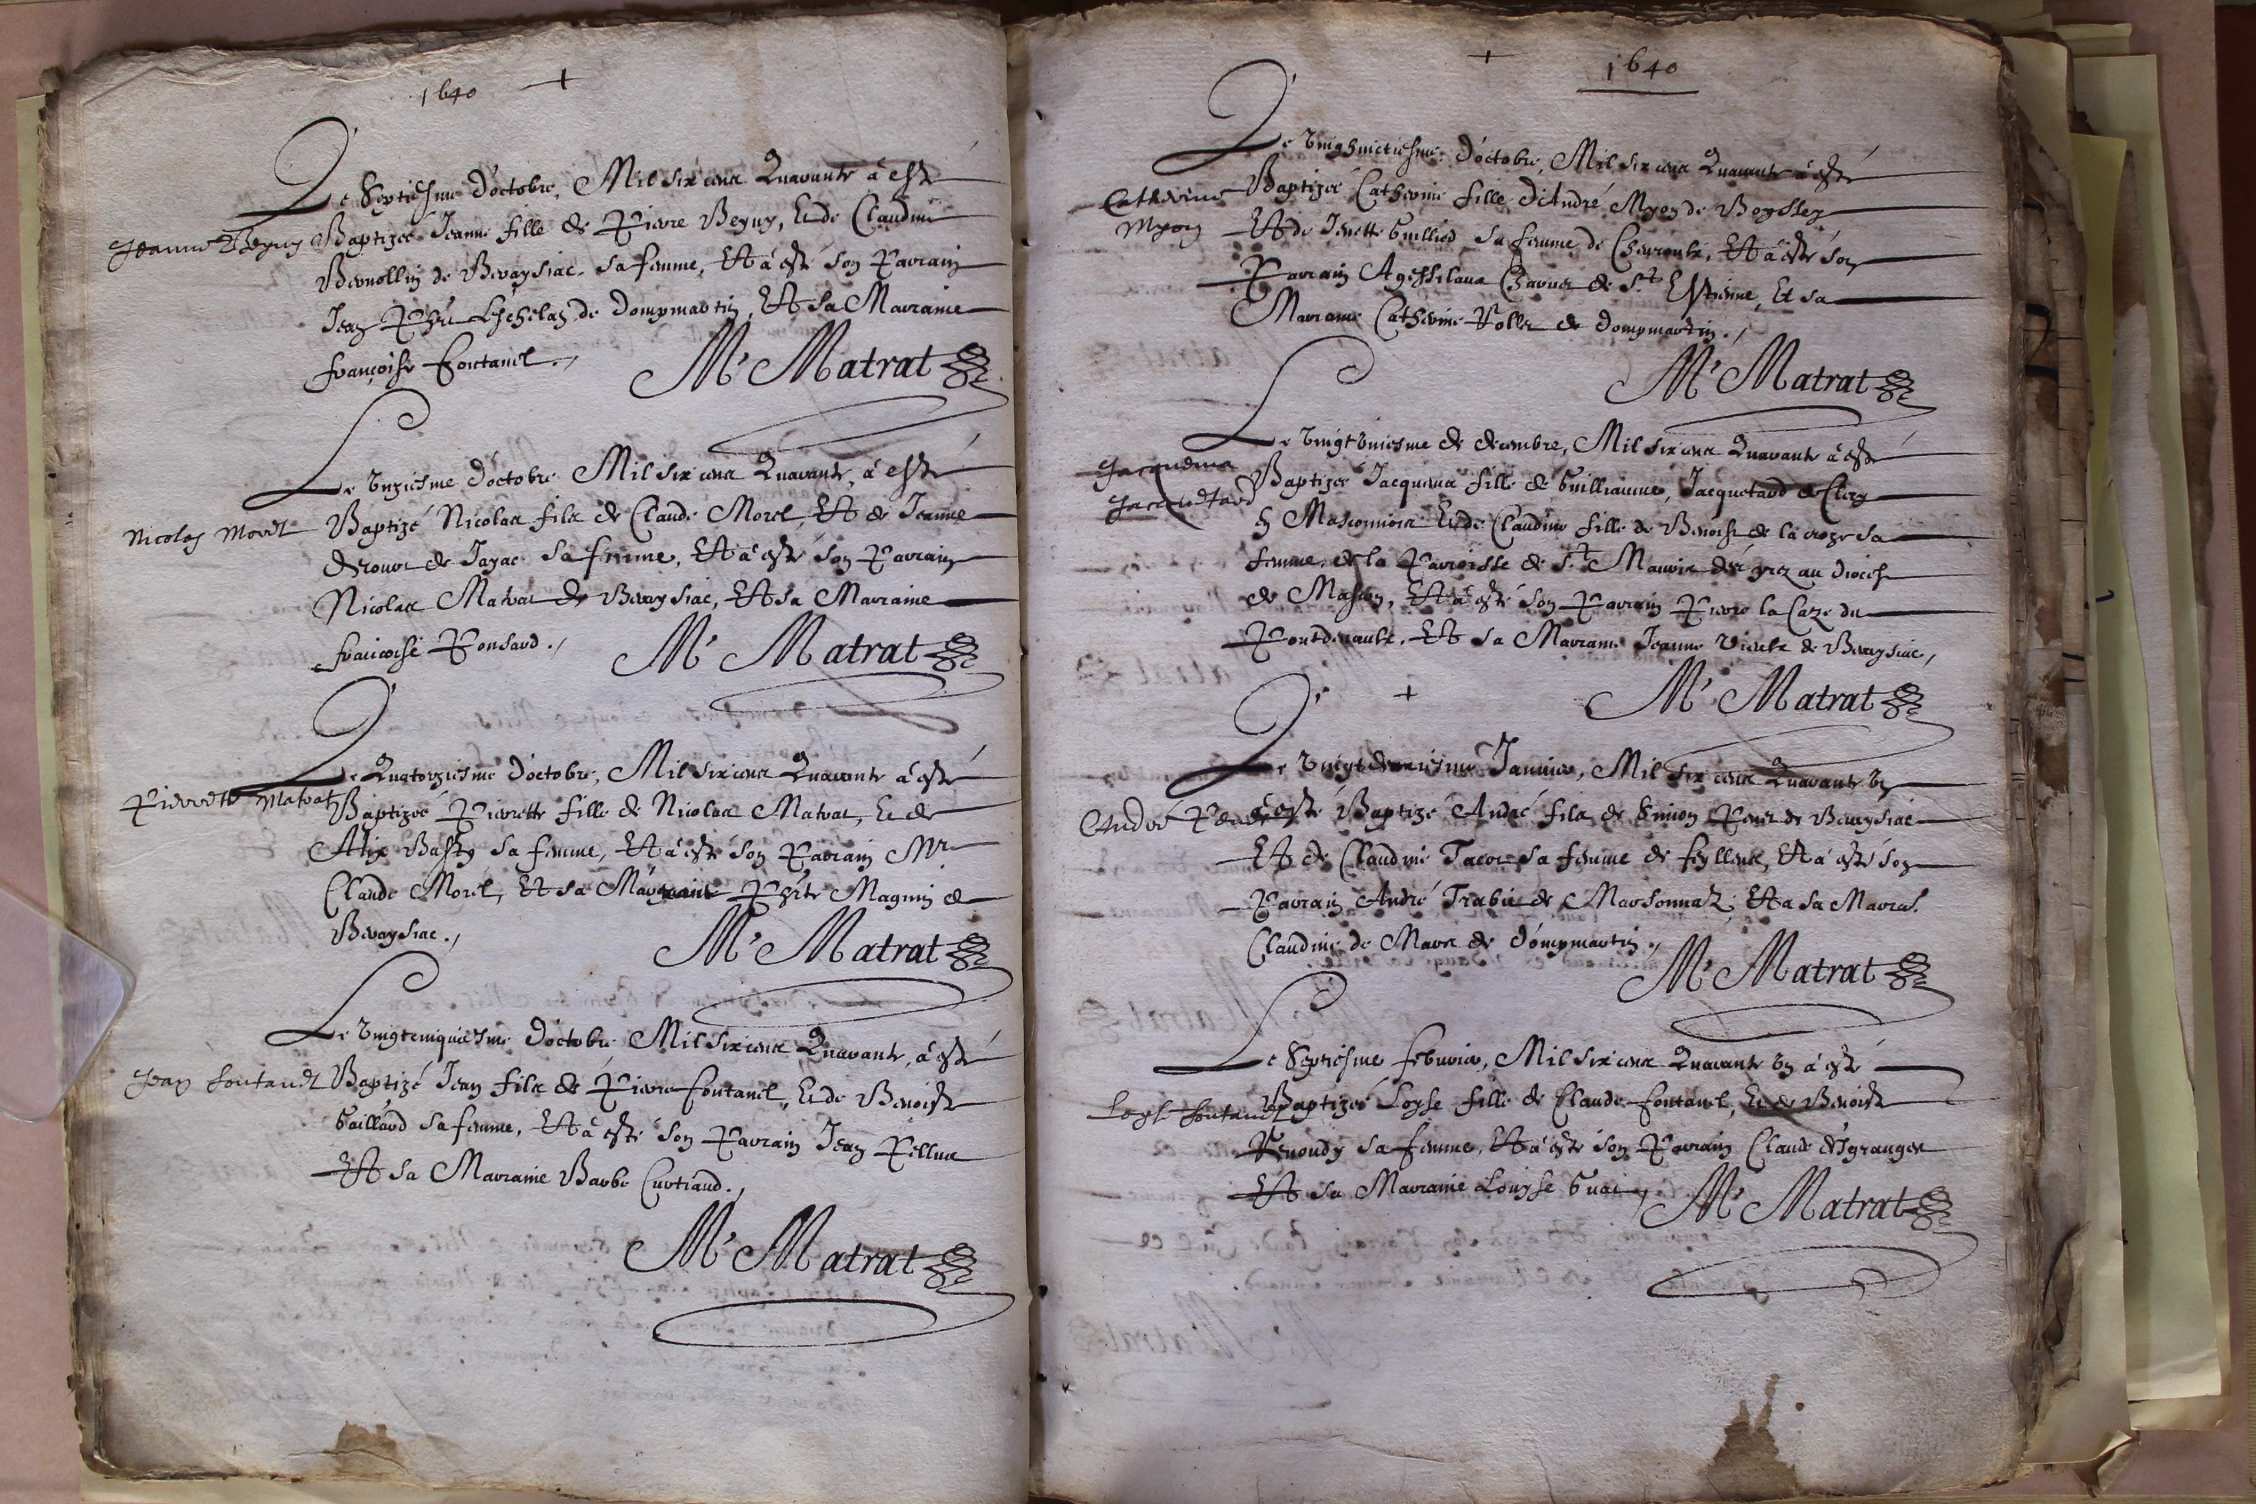 1640 +
Le Septiesme d'octobre, Mil six cens Quarante à esté
Jeanne Beguy
Baptizée Jeanne fille de Pierre Beguy, Et de Claudine
de Bevaysiac sa femme, Et à esté son Parrain
Jean de Dompmartin, Et sa Marraine
françoise fontanel.
Mr Matrat
Le Unziesme d'octobre Mil six cens Quarante, à esté
Nicolas Morel
Baptizé Nicolas fils de Claude Morel, Et de Jeanne
de Jayac sa femme, Et à esté son Parrain
Nicolas Matrat de Bevaysiac, Et sa Marraine
francoise Ponsard.
Mr Matrat
Le Quatorziesme d'octobre, Mil six cens Quarante à esté
Pierrette Matrat
Baptizée Pierrette fille de Nicolas Matrat, Et de
Alix sa femme, Et à esté son Parrain Mr
Claude Morel, Et sa Marraine Magnin de
Bevaysiac.
Mr Matrat
Le Vingtcinquiesme d'octobre Mil six cens Quarante, à esté
Jean fontanel
Baptizé Jean fils de Pierre fontanel, Et de Benoiste
Gaillard sa femme, Et à esté son Parrain Jean
Et sa Marraine Barbe Curtiaud.
Mr Matrat
+ 1640
Le d'octobre, Mil six cens Quarante à esté
Catherine
Myon
Baptizée Catherine fille d'André Myon de
Et de Jenette Guilliod sa femme de Et à esté son
Parrain de St Estienne, Et sa
Marraine Catherine de dompmartin.
Mr Matrat
Le Vingt Uniesme de decembre, Mil six cens Quarante à esté
Jacquema
Jacquetard
Baptizée Jacquema fille de Guilliaume, Jacquetard de
Et de Claudine fille de Benoist de la croze sa
femme, de la Parroisse de St au diocese
de Mascon, Et à esté son Parrain Pierre la Caze du
Et sa Marraine Jeanne de Bevaysiac,
Mr Matrat
+
Le Vingt deuxiesme Janvier, Mil six cens Quarante Un
André
à esté Baptizé André fils de Simon de Bevaysiac
Et de Claudine sa femme de Et à esté son
Parrain André de Marsonnas, Et a sa Marra.
Claudine de Mares de dompmartin.
Mr Matrat
Le Septiesme febvrier, Mil six cens Quarante Un à esté
Loyse fontanel
Baptizée Loyse fille de Claude fontanel, Et de Benoiste
Renoudy sa femme, Et à esté son Parrain Claude desgranges
Et sa Marraine Louyse
Mr Matrat